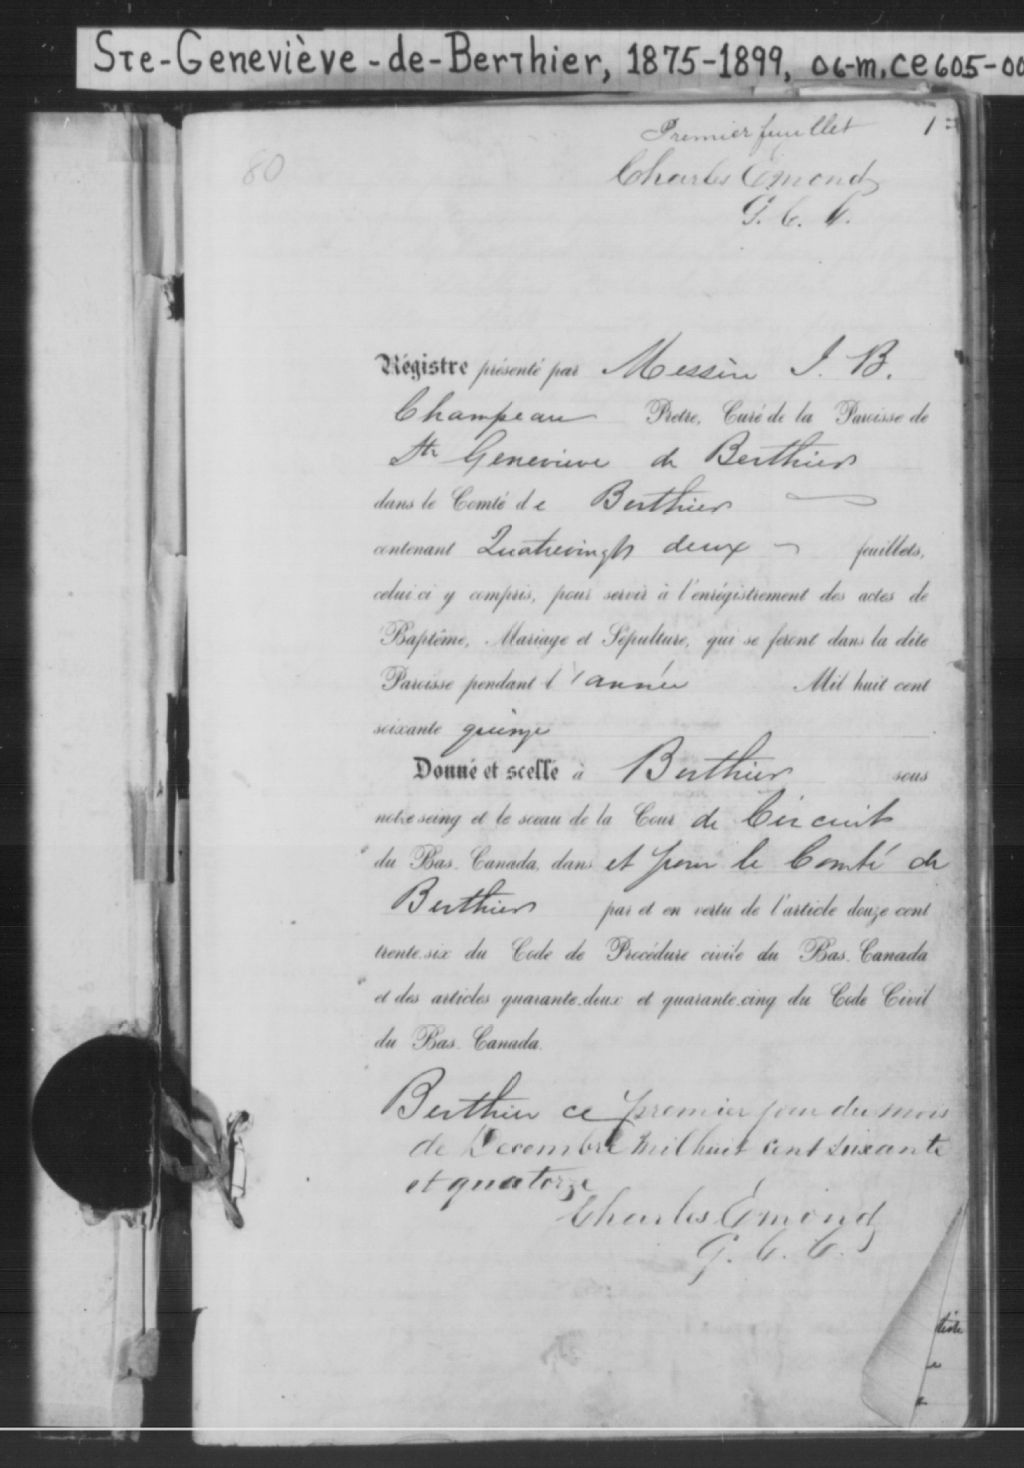 Ste-Geneviève-de-Berthier, 1875-1899, 06-m, ce605-00
Premier feuillet
1
80
Charles Emond
G. C. C.
Régistre présenté par Messire J. B.
Champeau Pretre, Curé de la Paroisse de
Ste Genevieve de Berthier
dans le Comté de Berthier
contenant Quatrevingt deux feuillets,
celui ci y compris, pour servir à l'enrégistrement des actes de
Baptême, Mariage et Sépulture, qui se feront dans la dite
Paroisse pendant l'année Mil huit cent
soixante quinze
Donné et scellé à Berthier sous
notre seing et le sceau de la Cour de Circuit
du Bas. Canada, dans et pour le Comté de
Berthier par et en vertu de l'article douze cent
trente.six du Code de Procédure civile du Bas. Canada
et des articles quarante.deux et quarante.cinq du Code Civil
du Bas. Canada.
Berthier ce premier jour du mois
de Decembre mil huit cent soixante
et quatorze
Charles Emond
G. C. C.